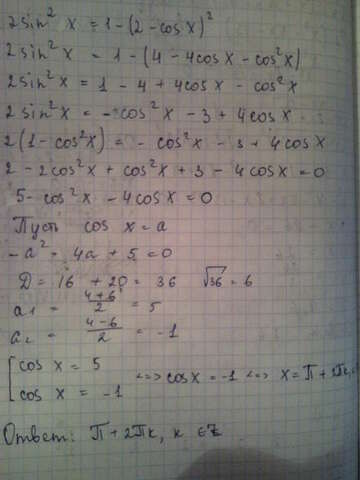 2sin² x = 1-(2-cosx)²
2sin² x = 1-(4-4cosx-cos²x)
2sin² x = 1-4+4cosx-cos²x
2sin² x = -cos²x-3+4cosx
2(1-cos²x) = -cos²x-3+4cosx
2-2cos²x+cos²x+3-4cosx=0
5-cos²x-4cosx=0
Пусть cosx=a
-a²-4a+5=0
D=16+20=36 √36=6
a₁ = (4+6)/2 = 5
a₂ = (4-6)/2 = -1
[cosx=5
cosx=-1 <=> cosx=-1 <=> x=П+2Пк,
Ответ: П+2Пк, к∈Z